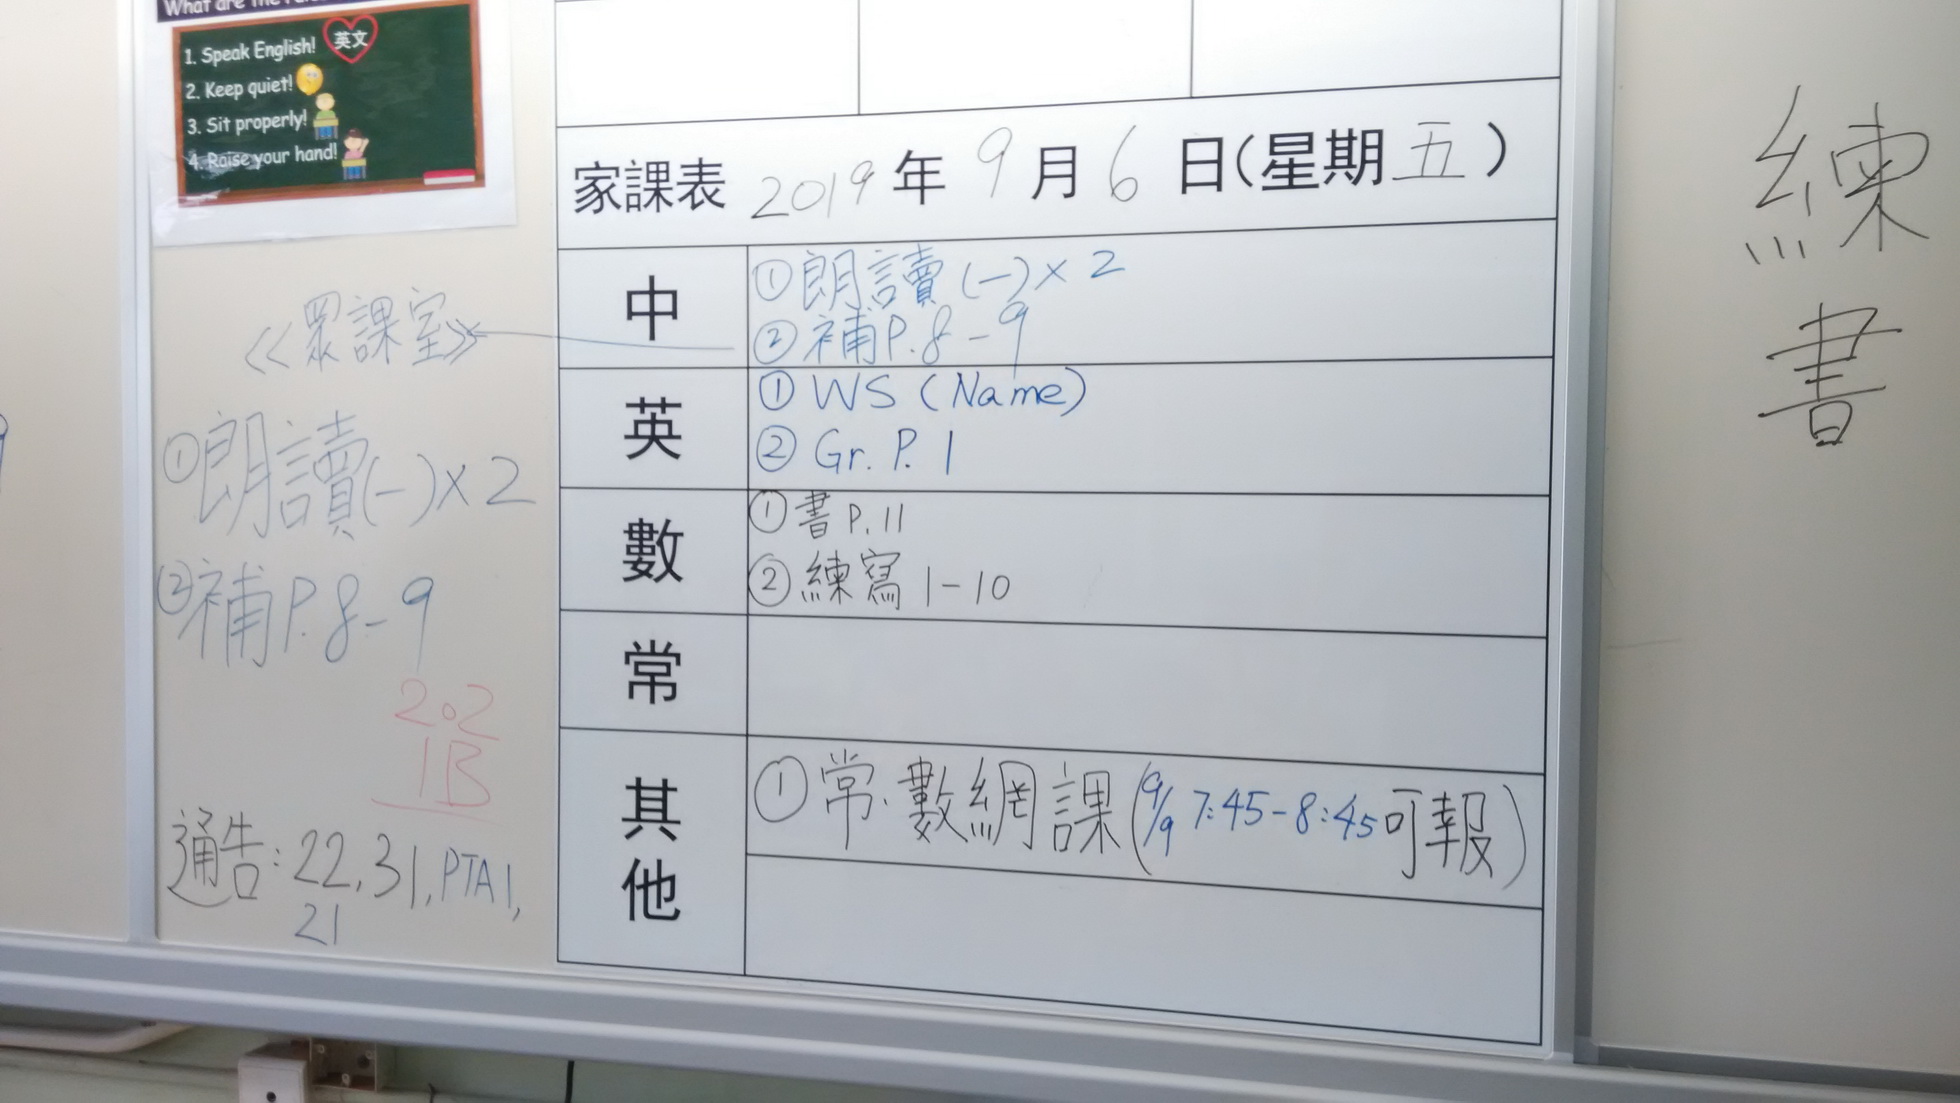 1. Speak English! 英文
2. Keep quiet!
3. Sit properly!
4. Raise your hand!
家課表 2019年9月6日(星期五)
中
①朗讀(一)×2
②補P.8-9
英
① WS (Name)
② Gr. P. 1
數
①書P.11
②練寫1-10
常
其他
①常.數網課(9/9 7:45-8:45可報)
課室》
①朗讀(一)×2
②補P.8-9
202
1B
通告: 22, 31, PTA1,
21
練
書